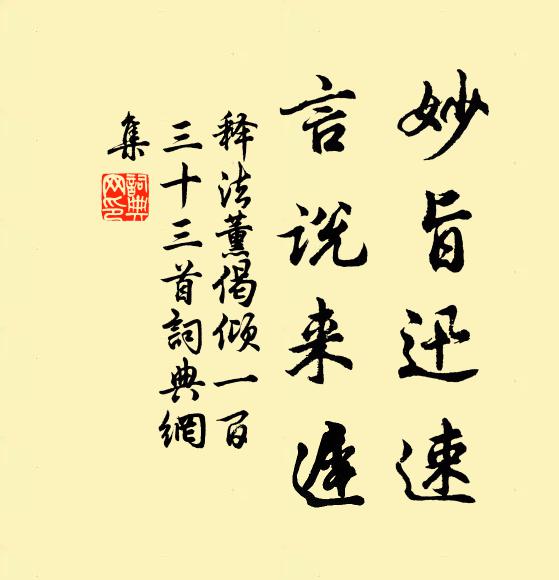 妙旨迅速
言说来遅
释法薰偈倾一百
三十三首詞典網
集
詞典
网印